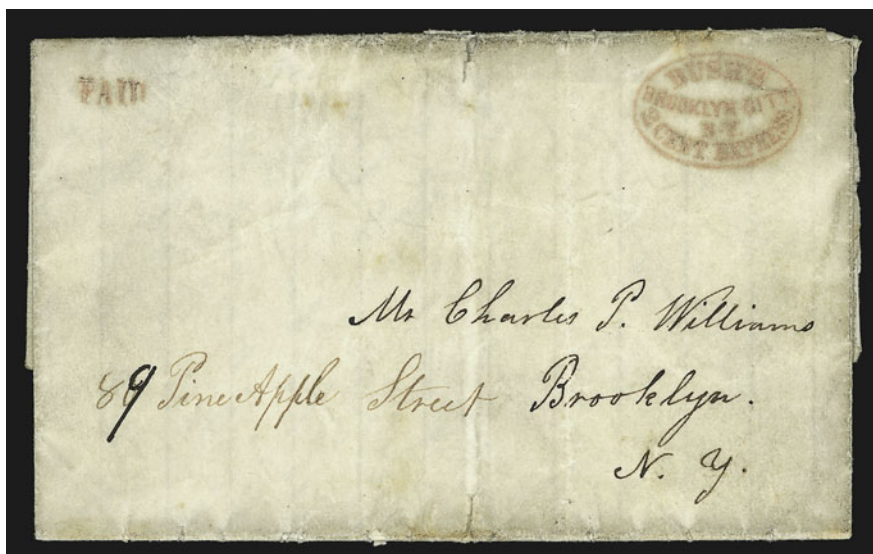 PAID
BUSH'S
BROOKLYN CITY
N.Y.
2 CENT EXPRESS
Mr Charles P. Williams
89 PineApple Street Brooklyn.
N. Y.